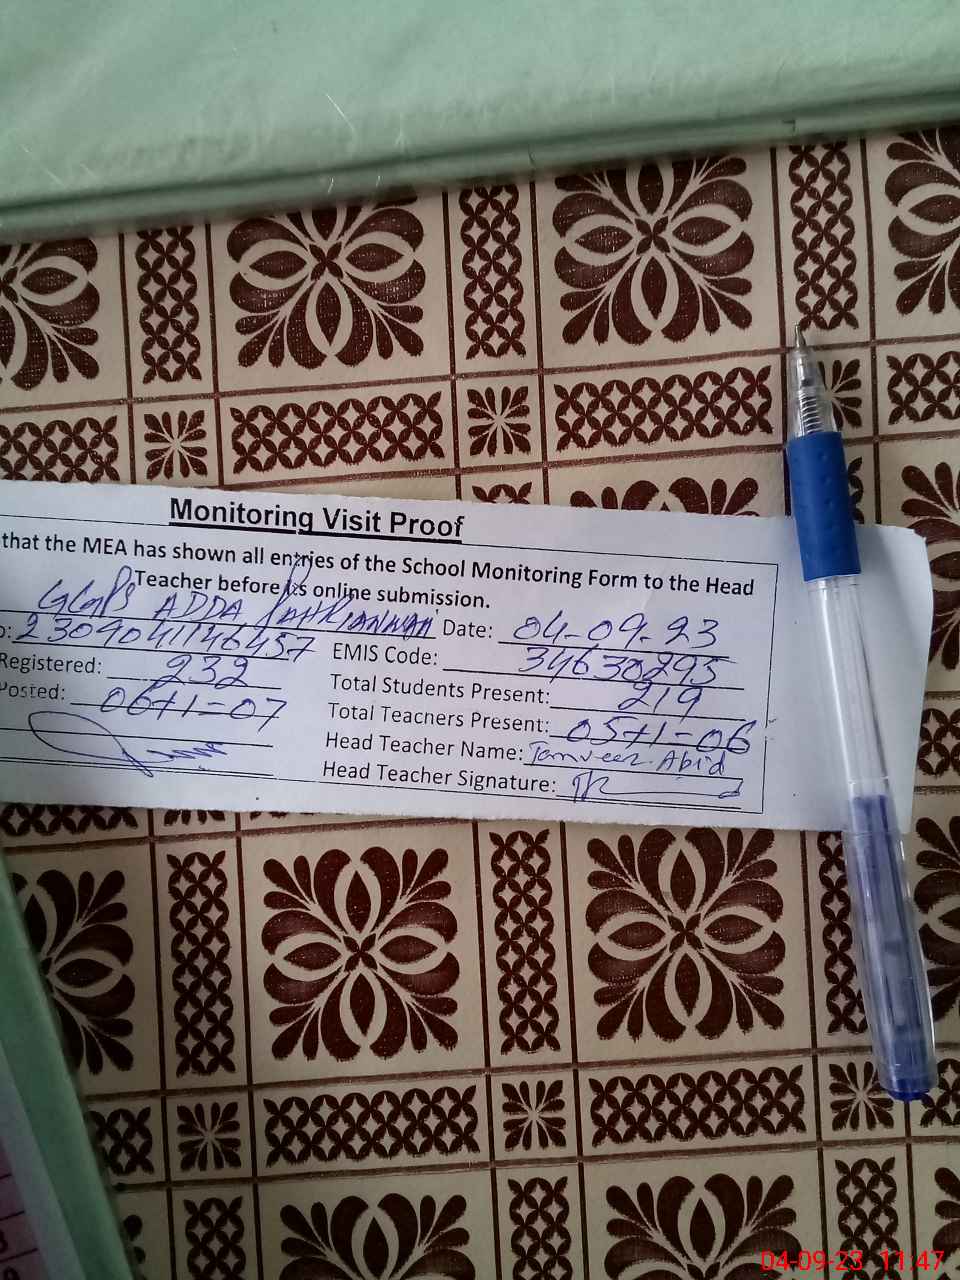 Monitoring Visit Proof
that the MEA has shown all entries of the School Monitoring Form to the Head
Teacher before its online submission.
GGPS ADDA Date: 04-09-23
o: 2309041146457 EMIS Code: 34630293
Registered: 232 Total Students Present: 219
Posted: 06+1=07 Total Teachers Present: 05+1=06
Head Teacher Name: Tanveer Abid
Head Teacher Signature:
04-09-23 11:47